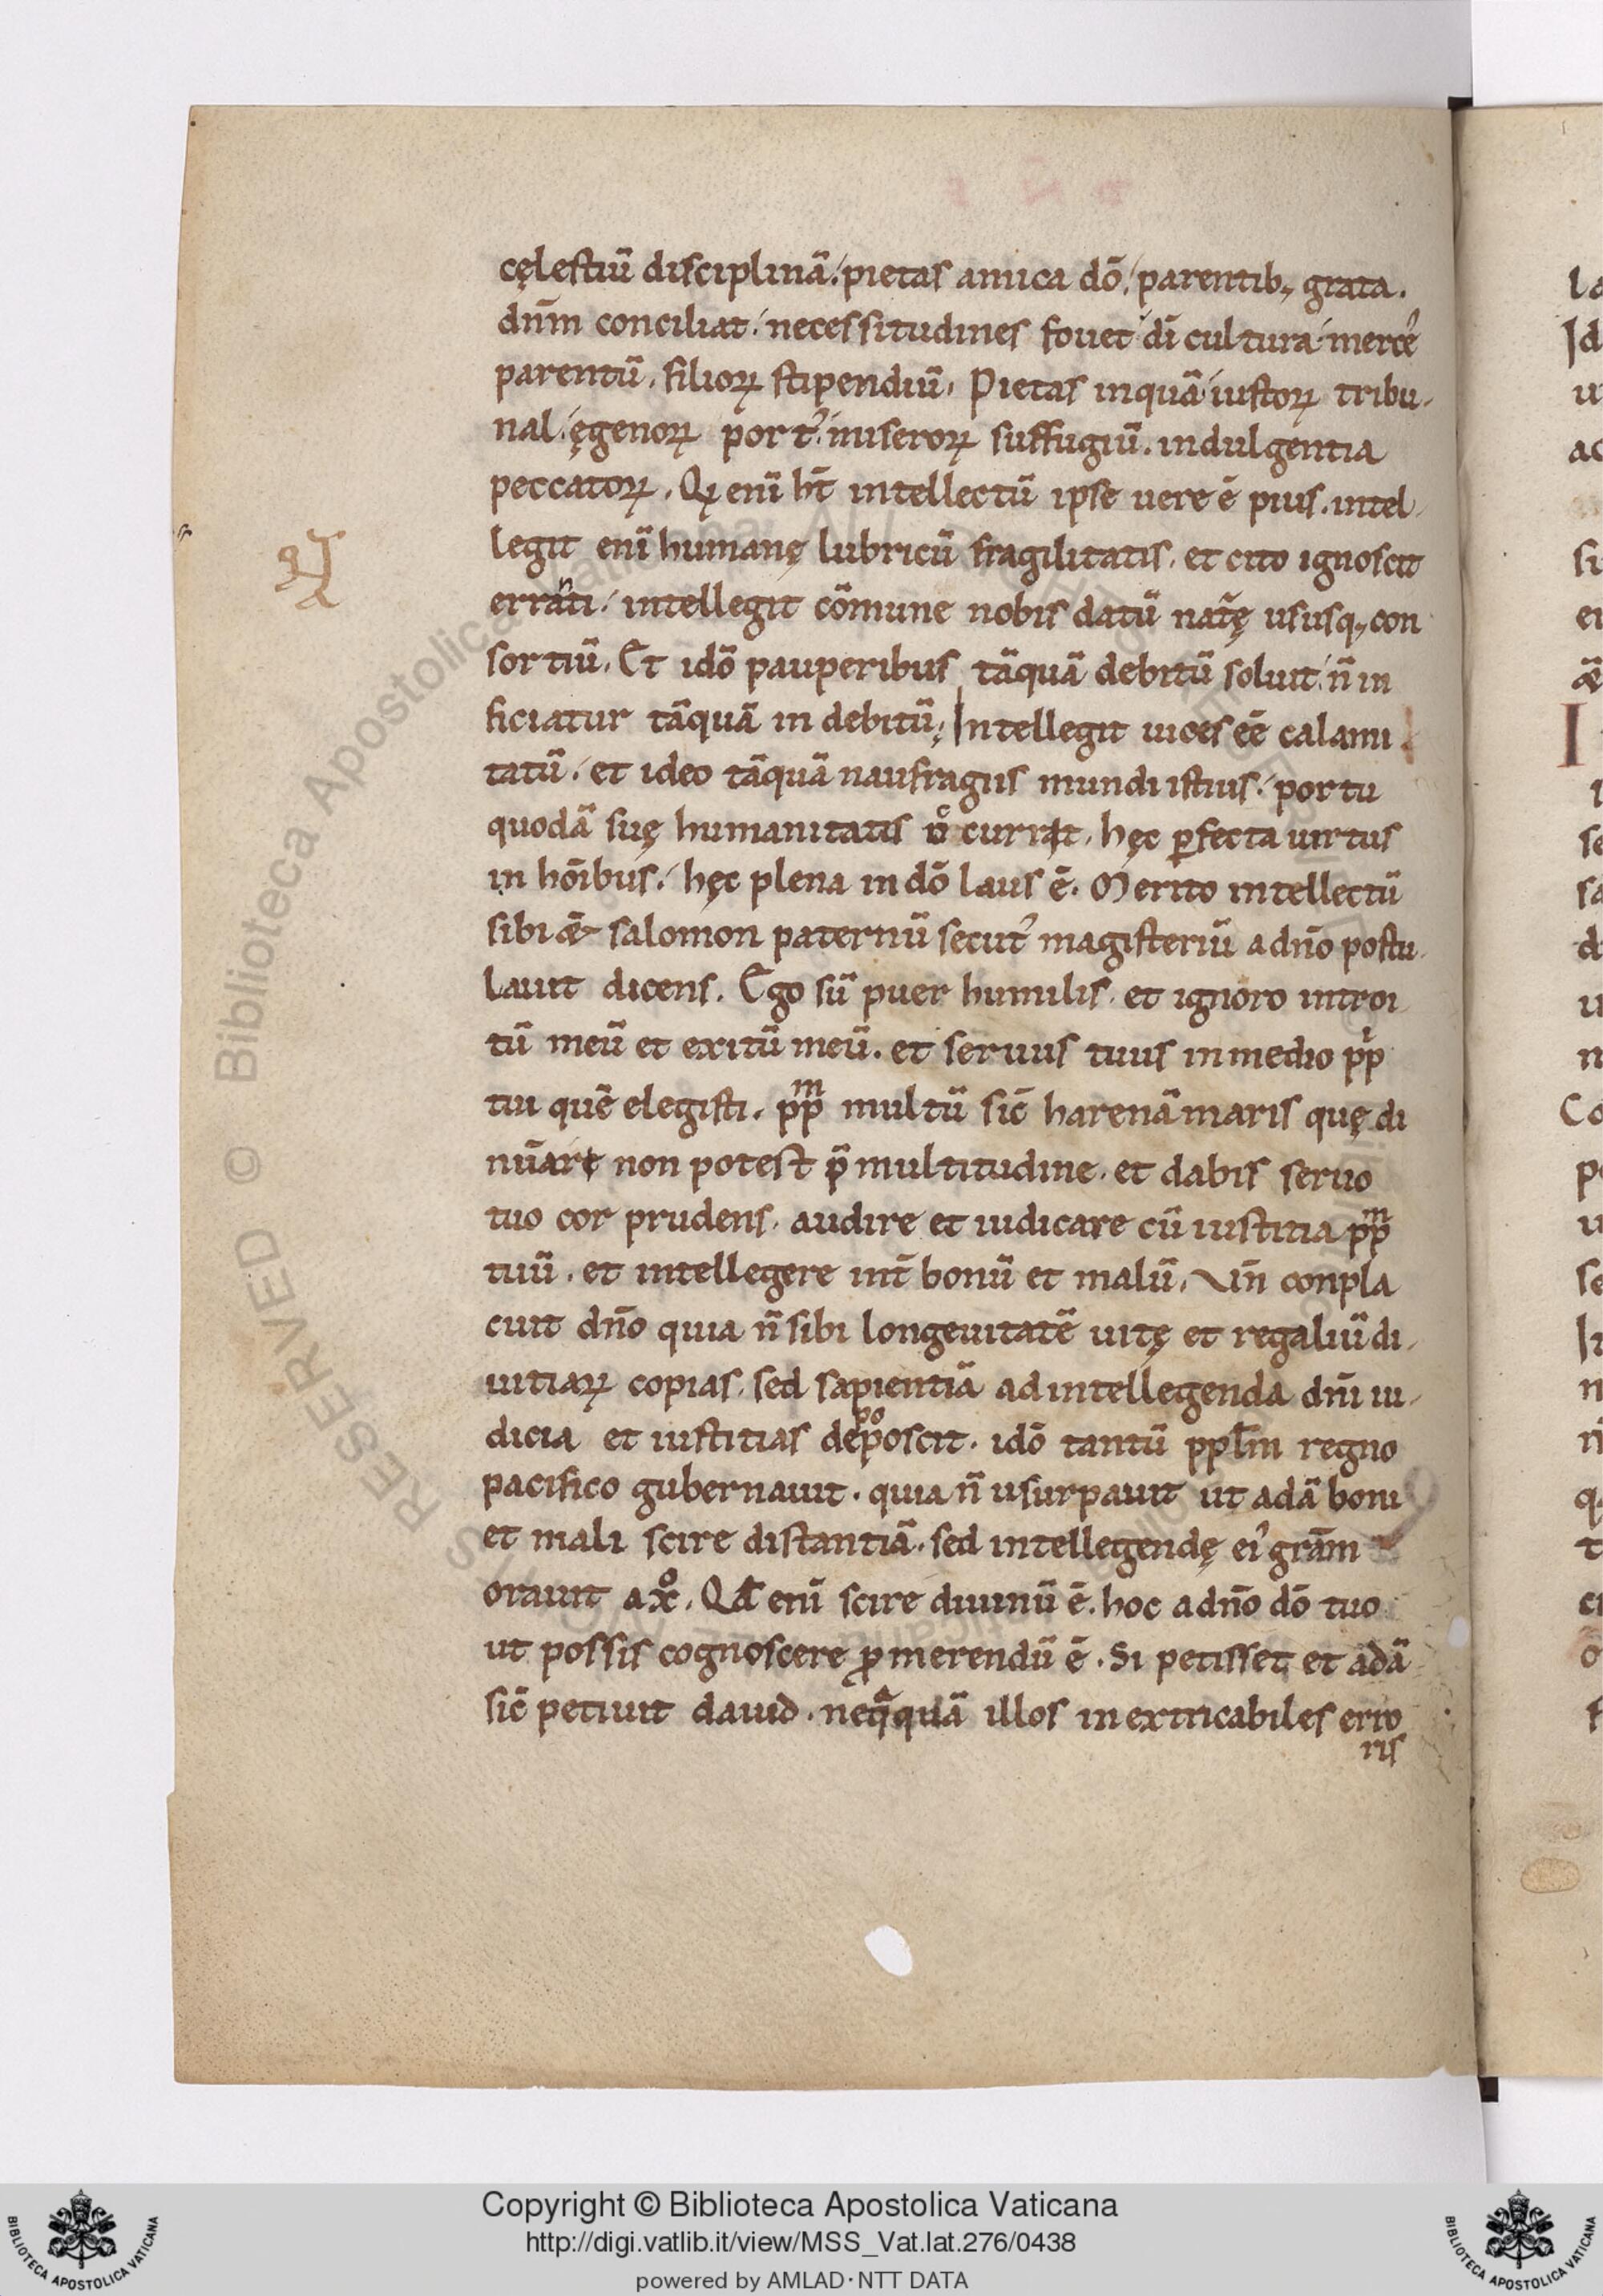 cęlestiū disciplinā. pietas amica dō. parentib; grata.
dnm̄ conciliat. necessitudines fouet di cultura merces
parentū. filioꝝ stipendiū. Pietas inquā iustoꝝ tribu-
nal. ęgenoꝝ port᾽. miseroꝝ suffugiū. indulgentia
peccatoꝝ. Qͥ enī ht̄ intellectū ipse uere ē pius. intel-
legit enī humanę lubricū fragilitatis. et cito ignoscit
erranti. intellegit cōmune nobis datū nat̄ę ususq; con
sortiū. Et idō pauperibus tāquā debitū soluit. n̄ in
ficiatur tāquā indebitū; Intellegit uices eē calami
tatū. et ideo tāquā naufragiis mundi istius. portu
quodā suę humanitatis occurrit. hęc ꝑfecta uirtus
in hōibus. hęc plena in dō laus ē. Merito intellectū
sibi æ salomon paternū secut᾽ magisteriū a dn̄o postu-
lauit dicens. Ego sū puer humilis. et ignoro introi
tū meū et exitū meū. et seruus tuus in medio pp̍
tui quē elegisti. ppᵐ multū sic̄ harenā maris quę di
nūari non potest p̄ multitudine. et dabis seruo
tuo cor prudens. audire et iudicare cū iustitia ppᵐ
tuū. et intellegere int̄ bonū et malū. Vn̄ conpla
cuit dn̄o quia n̄ sibi longeuitatē uitę et regaliū di-
uitiaꝝ copias. sed sapientiā ad intellegenda dn̄i iu-
dicia et iustitias depoposcit. idō tantū ppl̄m regno
pacifico gubernauit. quia n̄ usurpauit ut adā boni
et mali scire distantiā. sed intellegendę ei᾽ gr̄am
orauit a xͦ. Qd̄ enī scire diuinū ē. hoc a dn̄o dō tuo
ut possis cognoscere ꝓmerendū ē. Si petisset et adā
sic̄ petiuit dauid. neqᵃquā illos inextricabiles erro
ris
RESERVED © Biblioteca Apostolica Vaticana
Copyright © Biblioteca Apostolica Vaticana
http://digi.vatlib.it/view/MSS_Vat.lat.276/0438
powered by AMLAD·NTT DATA
BIBLIOTECA APOSTOLICA VATICANA
BIBLIOTECA APOSTOLICA VATICANA